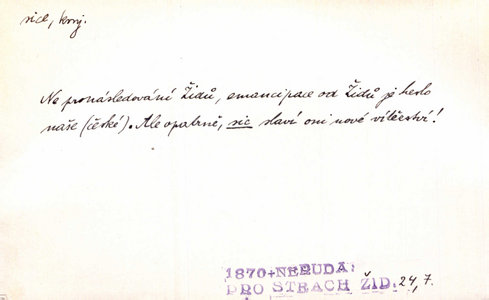 sice, konj.
Ne pronásledování Židů, emancipace od Židů je heslo
naše (české). Ale opatrně, sic slaví oni nové vítězství!
1870+NERUDA:
PRO STRACH ŽID. 24,7.